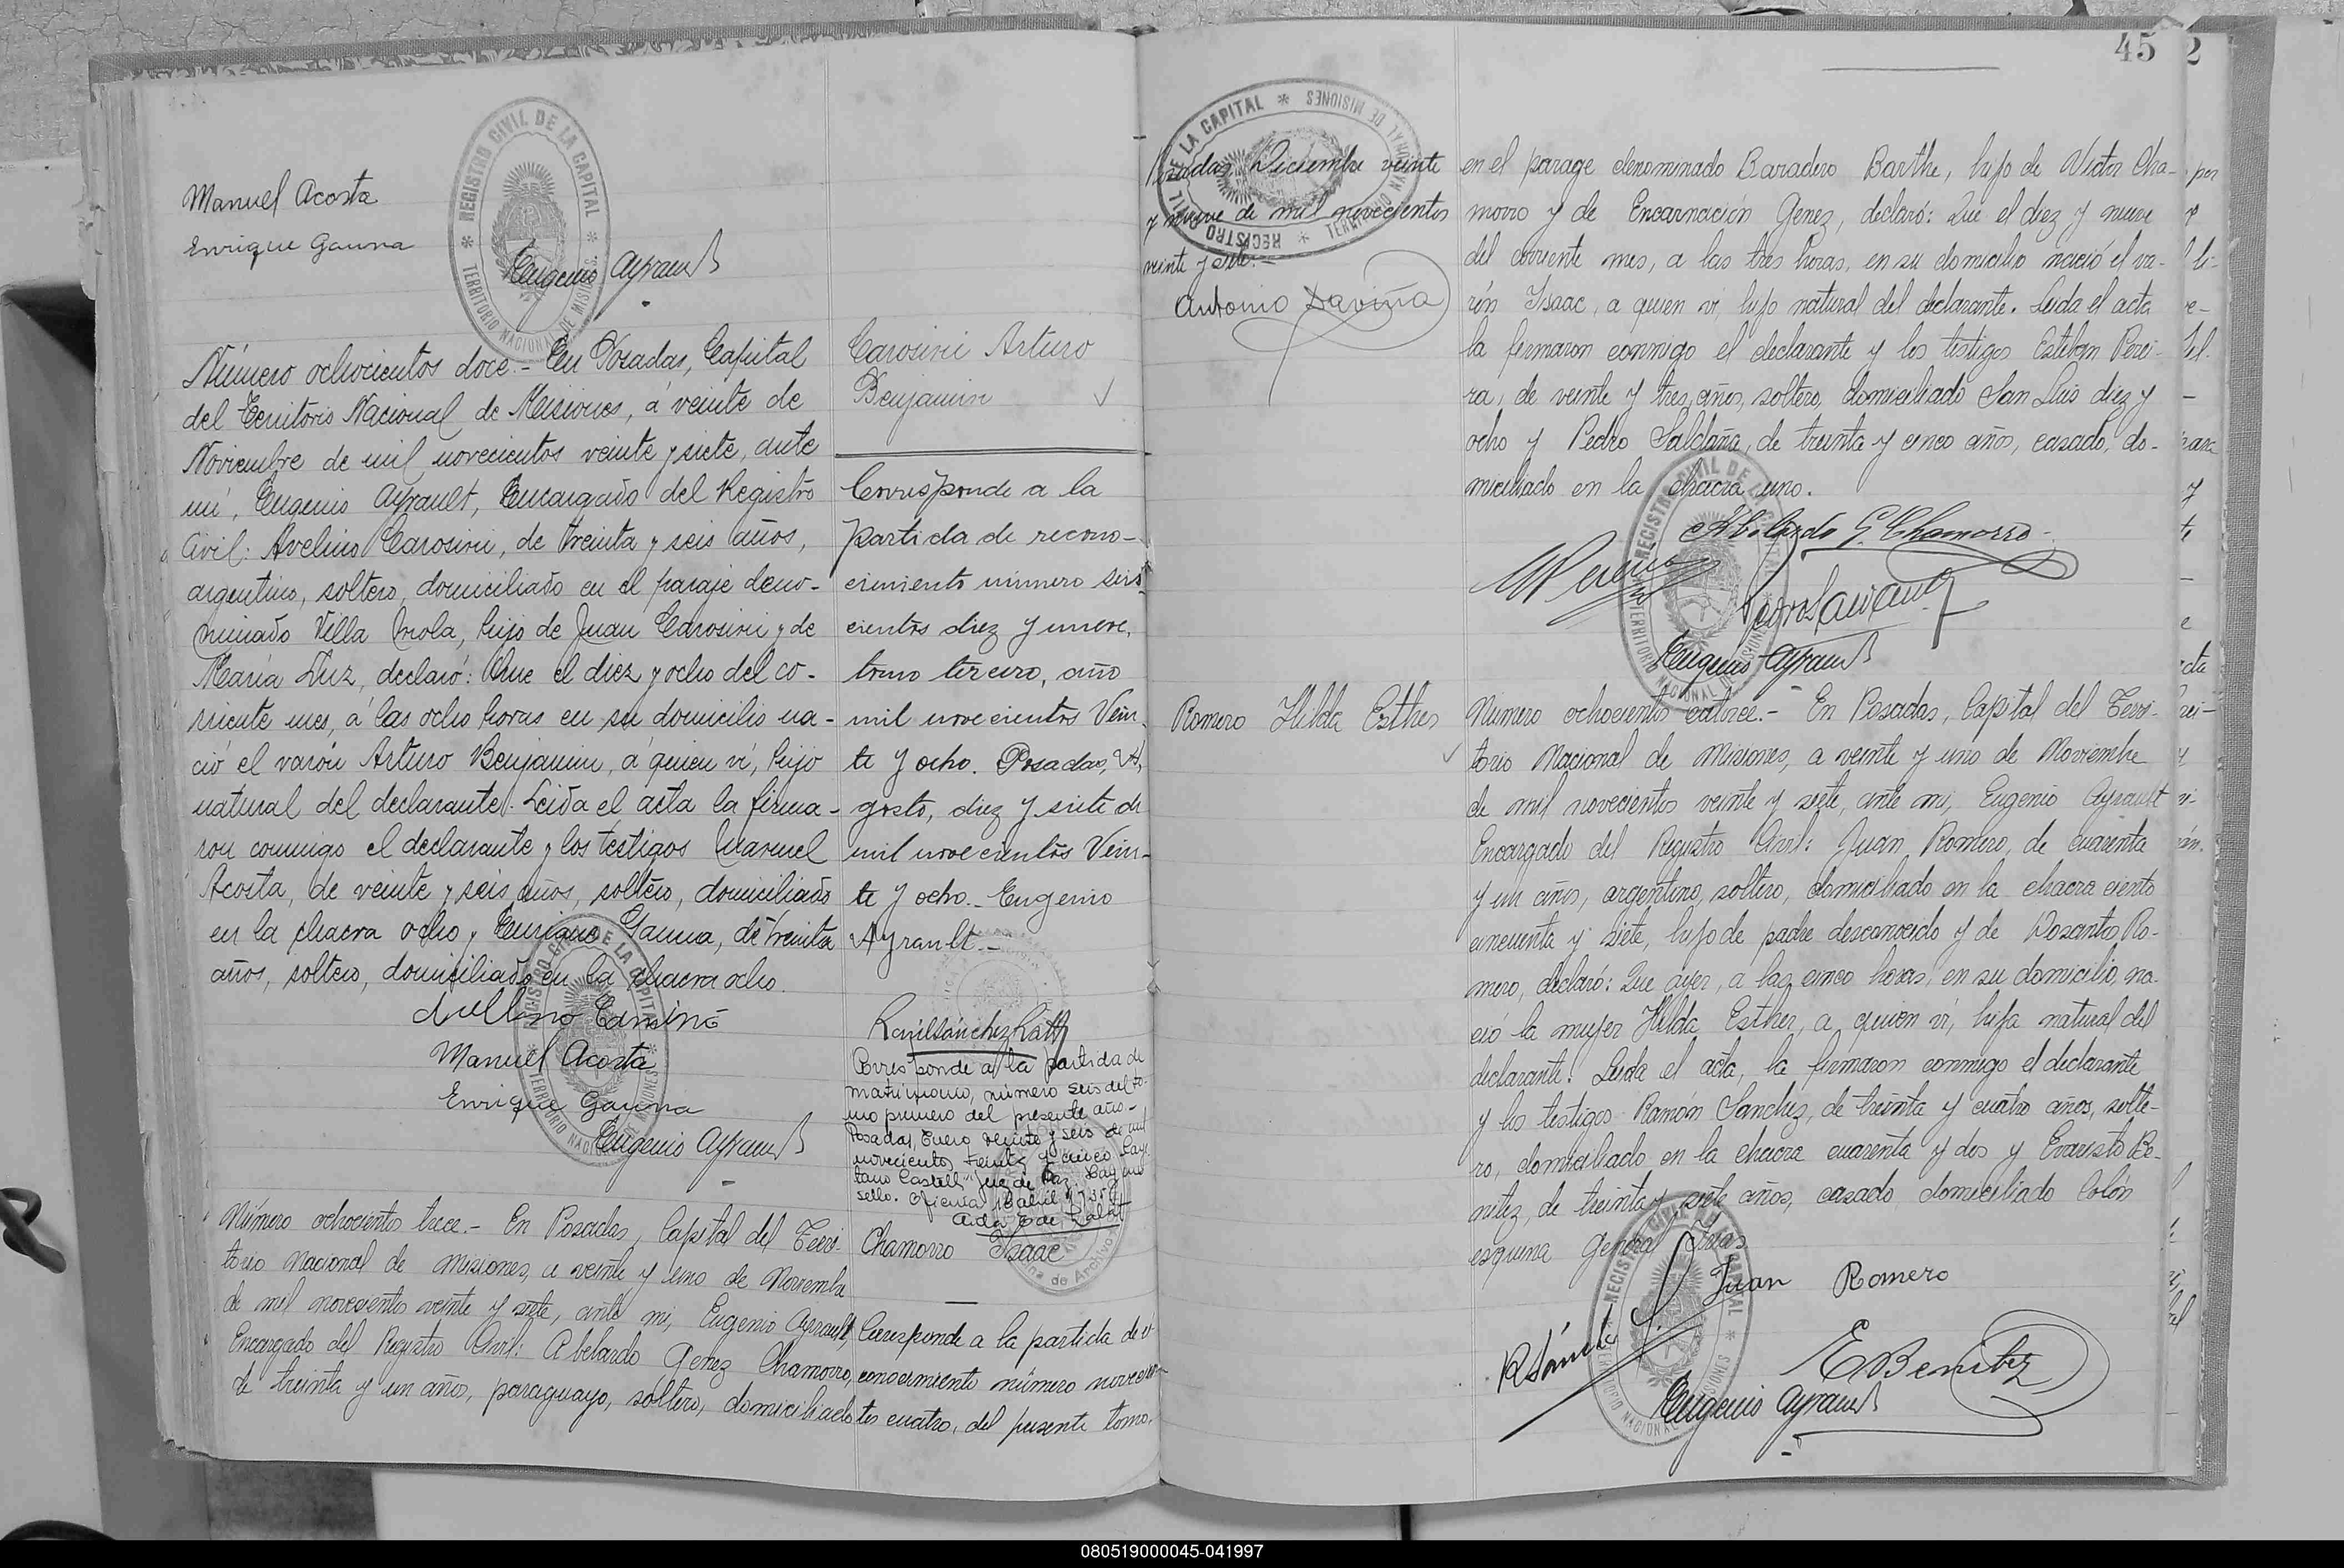 Manuel Acosta
Enrique Gauna
REGISTRO CIVIL DE LA CAPITAL
TERRITORIO NACIONAL DE MISIONES
Eugenio Ayrault
Número ochocientos doce.- En Posadas, Capital
del Territorio Nacional de Misiones, á veinte de
Noviembre de mil novecientos veinte y siete, ante
mi, Eugenio Ayrault, Encargado del Registro
Civil: Avelino Carosini, de treinta y seis años,
argentino, soltero, domiciliado en el paraje deno-
minado Villa Urola, hijo de Juan Carosini y de
María Luz, declaró: Que el diez y ocho del co-
rriente mes, á las ocho horas en su domicilio na-
ció el varón Arturo Benjamin, á quien ví, hijo
natural del declarante. Leida el acta la firma-
ron conmigo el declarante y los testigos Manuel
Acosta, de veinte y seis años, soltero, domiciliado
en la chacra ocho y Enrique Gauna, de treinta
años, soltero, domiciliado en la chacra ocho.
Manuel Acosta
Enrique Gauna
Eugenio Ayrault
Número ochocientos trece.- En Posadas, Capital del Terri-
torio Nacional de Misiones, a veinte y uno de Noviembre
de mil novecientos veinte y siete, ante mi, Eugenio Ayrault,
Encargado del Registro Civil: Abelardo Genez Chamorro,
de treinta y un años, paraguayo, soltero, domiciliado
Carosini Arturo
Benjamin
Corresponde a la
partida de recono-
cimiento número seis-
cientos diez y nueve,
tomo tercero, año
mil novecientos Vein-
te y ocho. Posadas, A-
gosto, diez y siete de
mil novecientos Vein-
te y ocho.- Eugenio
Ayrault.-
Raúl Sánchez Ratti
Corresponde a la partida de
matrimonio, número seis del to-
mo primero del presente año-
Posadas, Enero veinte y seis de mil
novecientos treinta y cinco Caye-
tano Castelli Juez de Paz. Hay un
sello. Oficina
Chamorro Isaac
Corresponde a la partida de re-
conocimiento número novecien-
tos cuatro, del presente tomo.
45
REGISTRO CIVIL DE LA CAPITAL
TERRITORIO NACIONAL DE MISIONES
Posadas, Diciembre veinte
y nueve de mil novecientos
veinte y siete.-
Antonio Laviña
en el parage denominado Baradero Barthe, hijo de Victor Cha-
morro y de Encarnación Genez, declaró: Que el diez y nueve
del corriente mes, a las tres horas, en su domicilio nació el va-
rón Isaac, a quien vi, hijo natural del declarante. Leida el acta
la firmaron conmigo el declarante y los testigos Esteban Perei-
ra, de veinte y tres años, soltero, domiciliado San Luis diez y
ocho y Pedro Saldaña, de treinta y cinco años, casado, do-
miciliado en la chacra uno.
Abelardo G. Chamorro
Eugenio Ayrault
Romero Hilda Esther
Número ochocientos catorce.- En Posadas, Capital del Terri-
torio Nacional de Misiones, a veinte y uno de Noviembre
de mil novecientos veinte y siete, ante mi, Eugenio Ayrault
Encargado del Registro Civil: Juan Romero, de cuarenta
y un años, argentino, soltero, domiciliado en la chacra ciento
cincuenta y siete, hijo de padre desconocido y de Dosantos Ro-
mero, declaró: Que ayer, a las cinco horas, en su domicilio, na-
ció la mujer Hilda Esther, a quien ví, hija natural del
declarante. Leida el acta, la firmaron conmigo el declarante
y los testigos Ramón Sanchez, de treinta y cuatro años, solte-
ro, domiciliado en la chacra cuarenta y dos y Evaristo Be-
nitez, de treinta y siete años, casado, domiciliado Colón
esquina General Frias
Juan Romero
E Benitez
Eugenio Ayrault
080519000045-041997